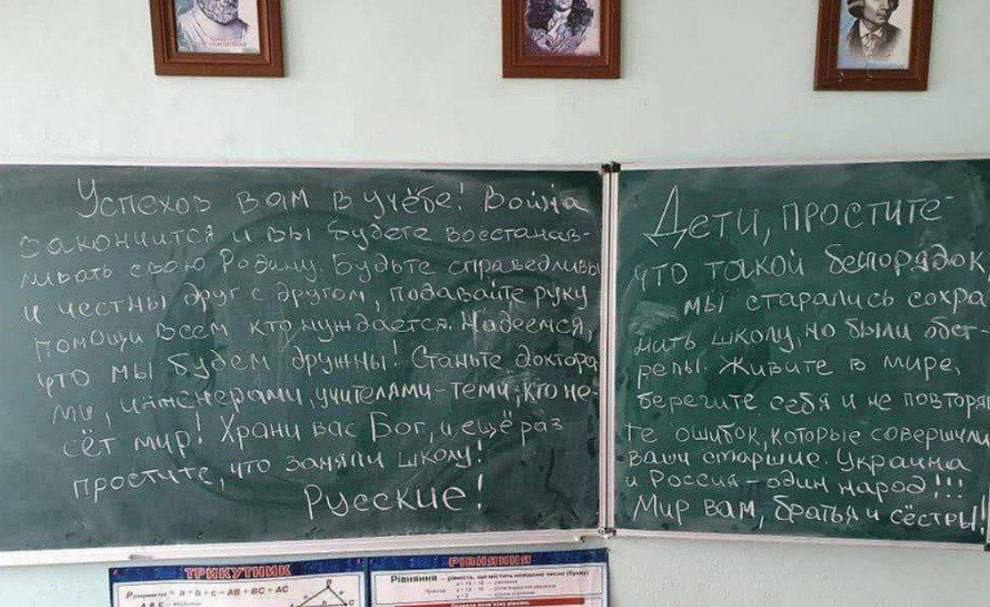 Успехов вам в учёбе! Война
закончится и вы будете восстанав-
ливать свою Родину. Будьте справедливы
и честны друг с другом, подавайте руку
помощи всем кто нуждается. Надеемся,
что мы будем дружны! Станьте доктора-
ми, инженерами, учителями-теми, кто не-
сёт мир! Храни вас Бог, и ещё раз
простите, что заняли школу!
Русские!
Дети, простите
что такой беспорядок,
мы старались сохра
нить школу, но были обст-
релы. Живите в мире,
берегите себя и не повторяй
те ошибок, которые совершили
ваши старшие. Украина
и Россия - один народ!!!
Мир вам, братья и сёстры!
ТРИКУТНИК
= a + b + c = AB + BC + AC
B
C
РІВНЯННЯ
Рівняння – рівність, що містить невідоме число (букву)